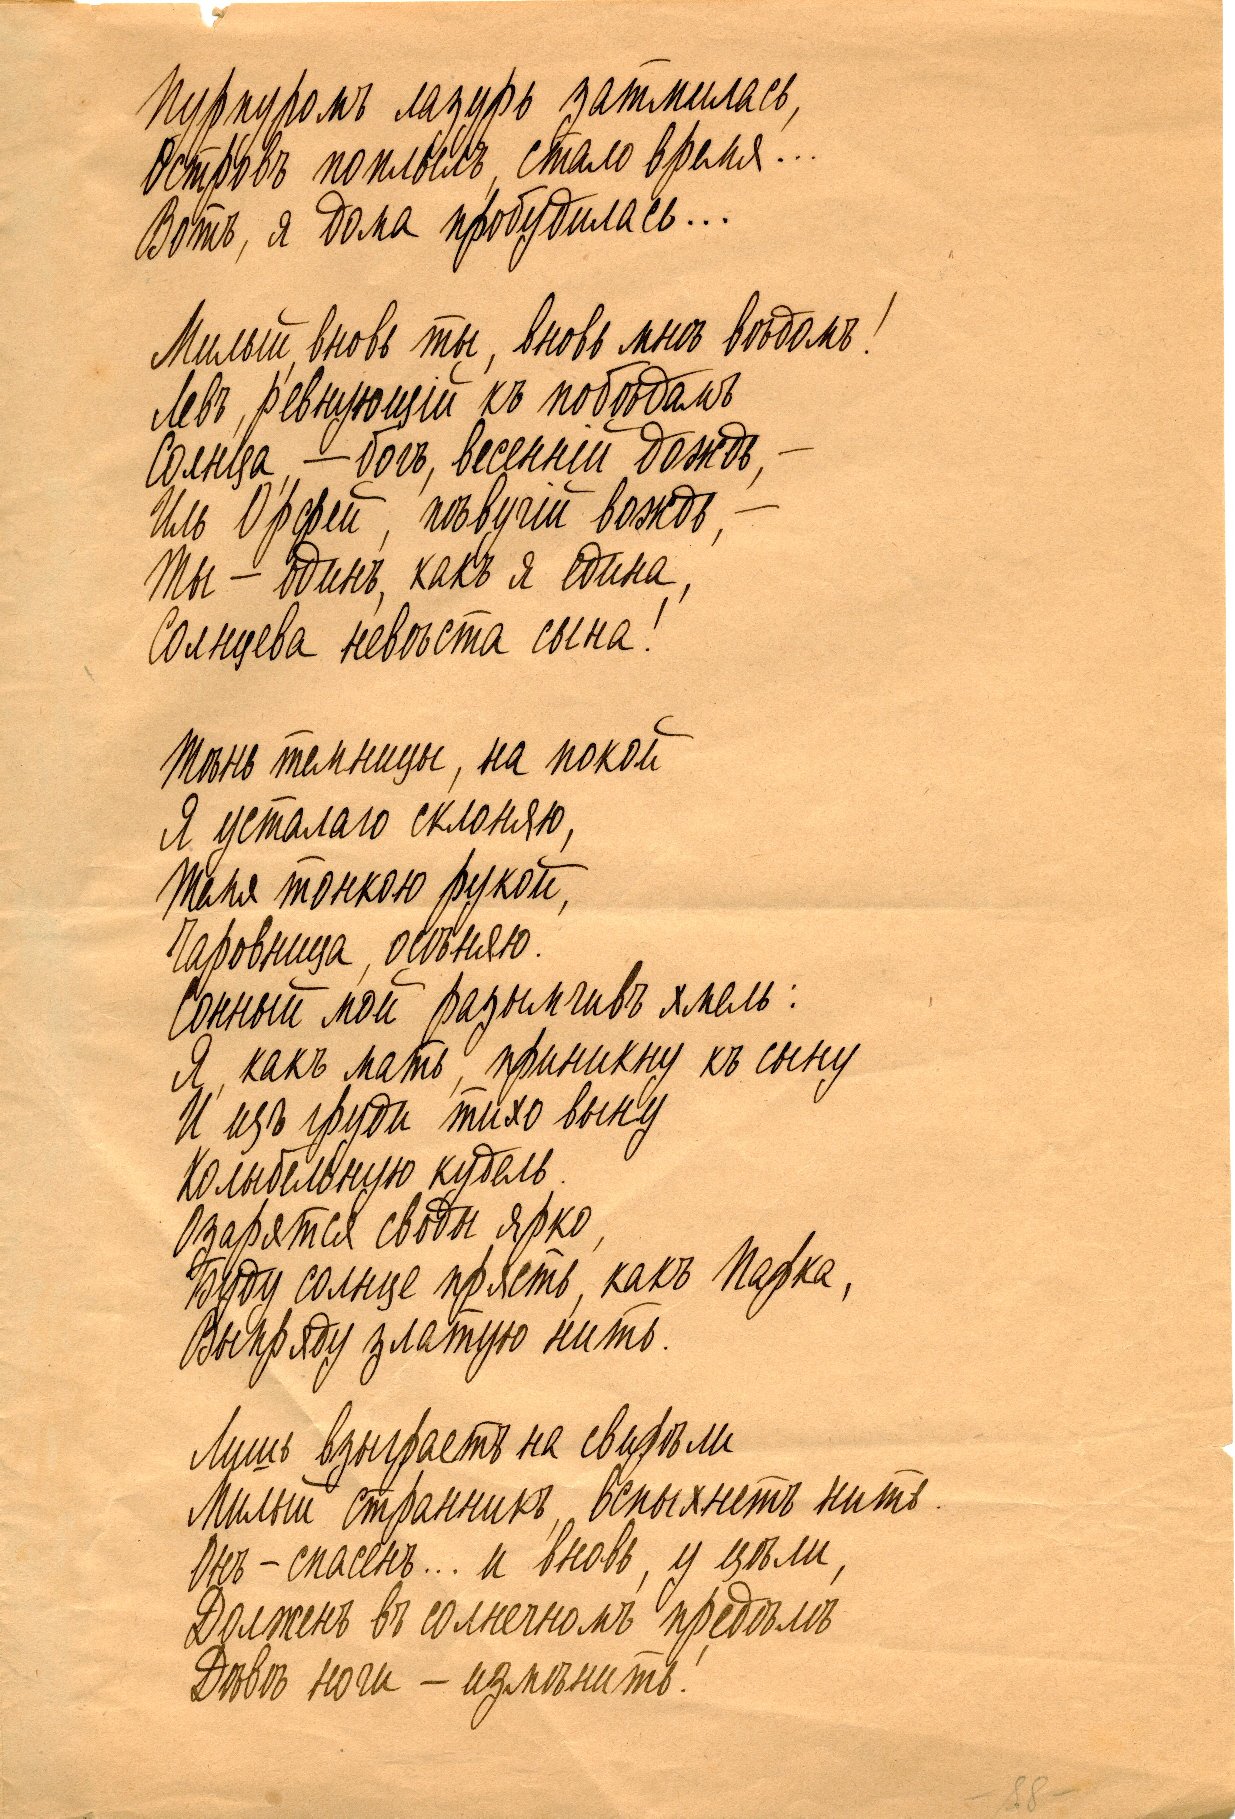 Пурпуромъ лазурь затмилась,
Островъ поплылъ, стало время...
Вотъ, я дома пробудилась...
Милый, вновь ты, вновь мнѣ вѣдомъ!
Левъ, ревнующій къ побѣдамъ
Солнца, — богъ, весенній дождь, —
Иль Орфей, пѣвучій вождь, —
Ты — одинъ, какъ я едина,
Солнцева невѣста сына!
Тѣнь темницы, на покой
Я усталаго склоняю,
Темя тонкою рукой,
Чаровница, осѣняю.
Сонный мой разымчивъ хмель:
Я, какъ мать, приникну къ сыну
И изъ груди тихо выну
Колыбельную кудель.
Озарятся своды ярко,
Буду солнце прясть, какъ Парка,
Выпряду златую нить.
Лишь взыграетъ на свирѣли
Милый странникъ, вспыхнетъ нить.
Онъ — спасенъ... и вновь, у цѣли,
Долженъ въ солнечномъ предѣлѣ
Дѣвѣ ночи — измѣнить!
– 88 –